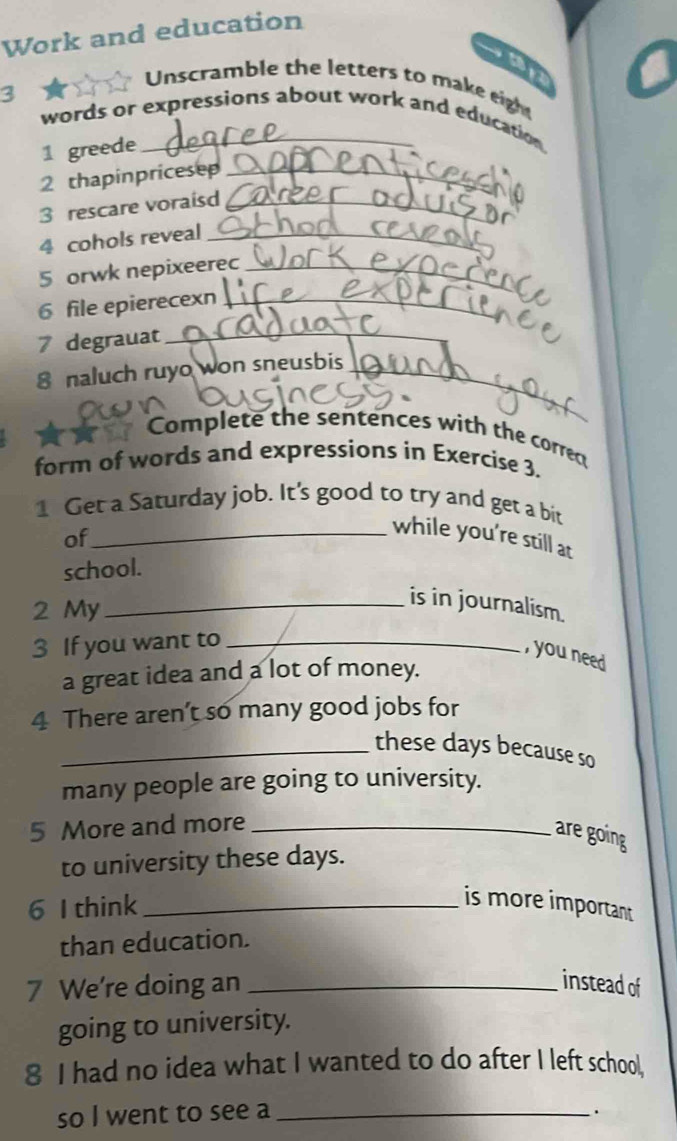 Work and education
3 Unscramble the letters to make eight
words or expressions about work and education.
1 greede degree
2 thapinpricesep apprenticesship
3 rescare voraisd Career advisor
4 cohols reveal School reveals
5 orwk nepixeerec Work experence
6 file epierecexn life experience
7 degrauat graduate
8 naluch ruyo won sneusbis launch your
own business.
Complete the sentences with the correct
form of words and expressions in Exercise 3.
1 Get a Saturday job. It's good to try and get a bit
of while you're still at
school.
2 My is in journalism.
3 If you want to , you need
a great idea and a lot of money.
4 There aren't so many good jobs for
these days because so
many people are going to university.
5 More and more are going
to university these days.
6 I think is more important
than education.
7 We're doing an instead of
going to university.
8 I had no idea what I wanted to do after I left school,
so I went to see a .